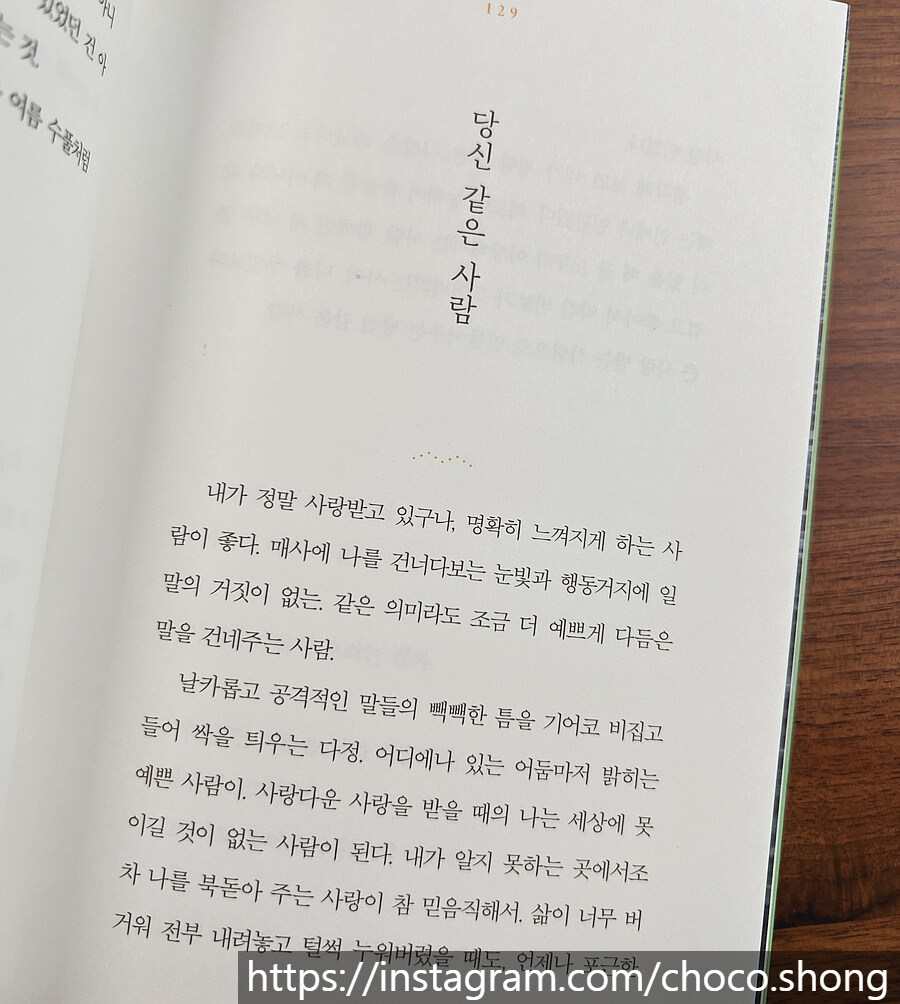 아니
있었던 건 아
는 것.
여름 수풀처럼
129
당신 같은 사람
내가 정말 사랑받고 있구나, 명확히 느껴지게 하는 사
람이 좋다. 매사에 나를 건너다보는 눈빛과 행동거지에 일
말의 거짓이 없는. 같은 의미라도 조금 더 예쁘게 다듬은
말을 건네주는 사람.
날카롭고 공격적인 말들의 빽빽한 틈을 기어코 비집고
들어 싹을 틔우는 다정. 어디에나 있는 어둠마저 밝히는
예쁜 사람이. 사랑다운 사랑을 받을 때의 나는 세상에 못
이길 것이 없는 사람이 된다. 내가 알지 못하는 곳에서조
차 나를 북돋아 주는 사랑이 참 믿음직해서. 삶이 너무 버
거워 전부 내려놓고 털썩 누워버렸을 때도, 언제나 포근한
https://instagram.com/choco.shong